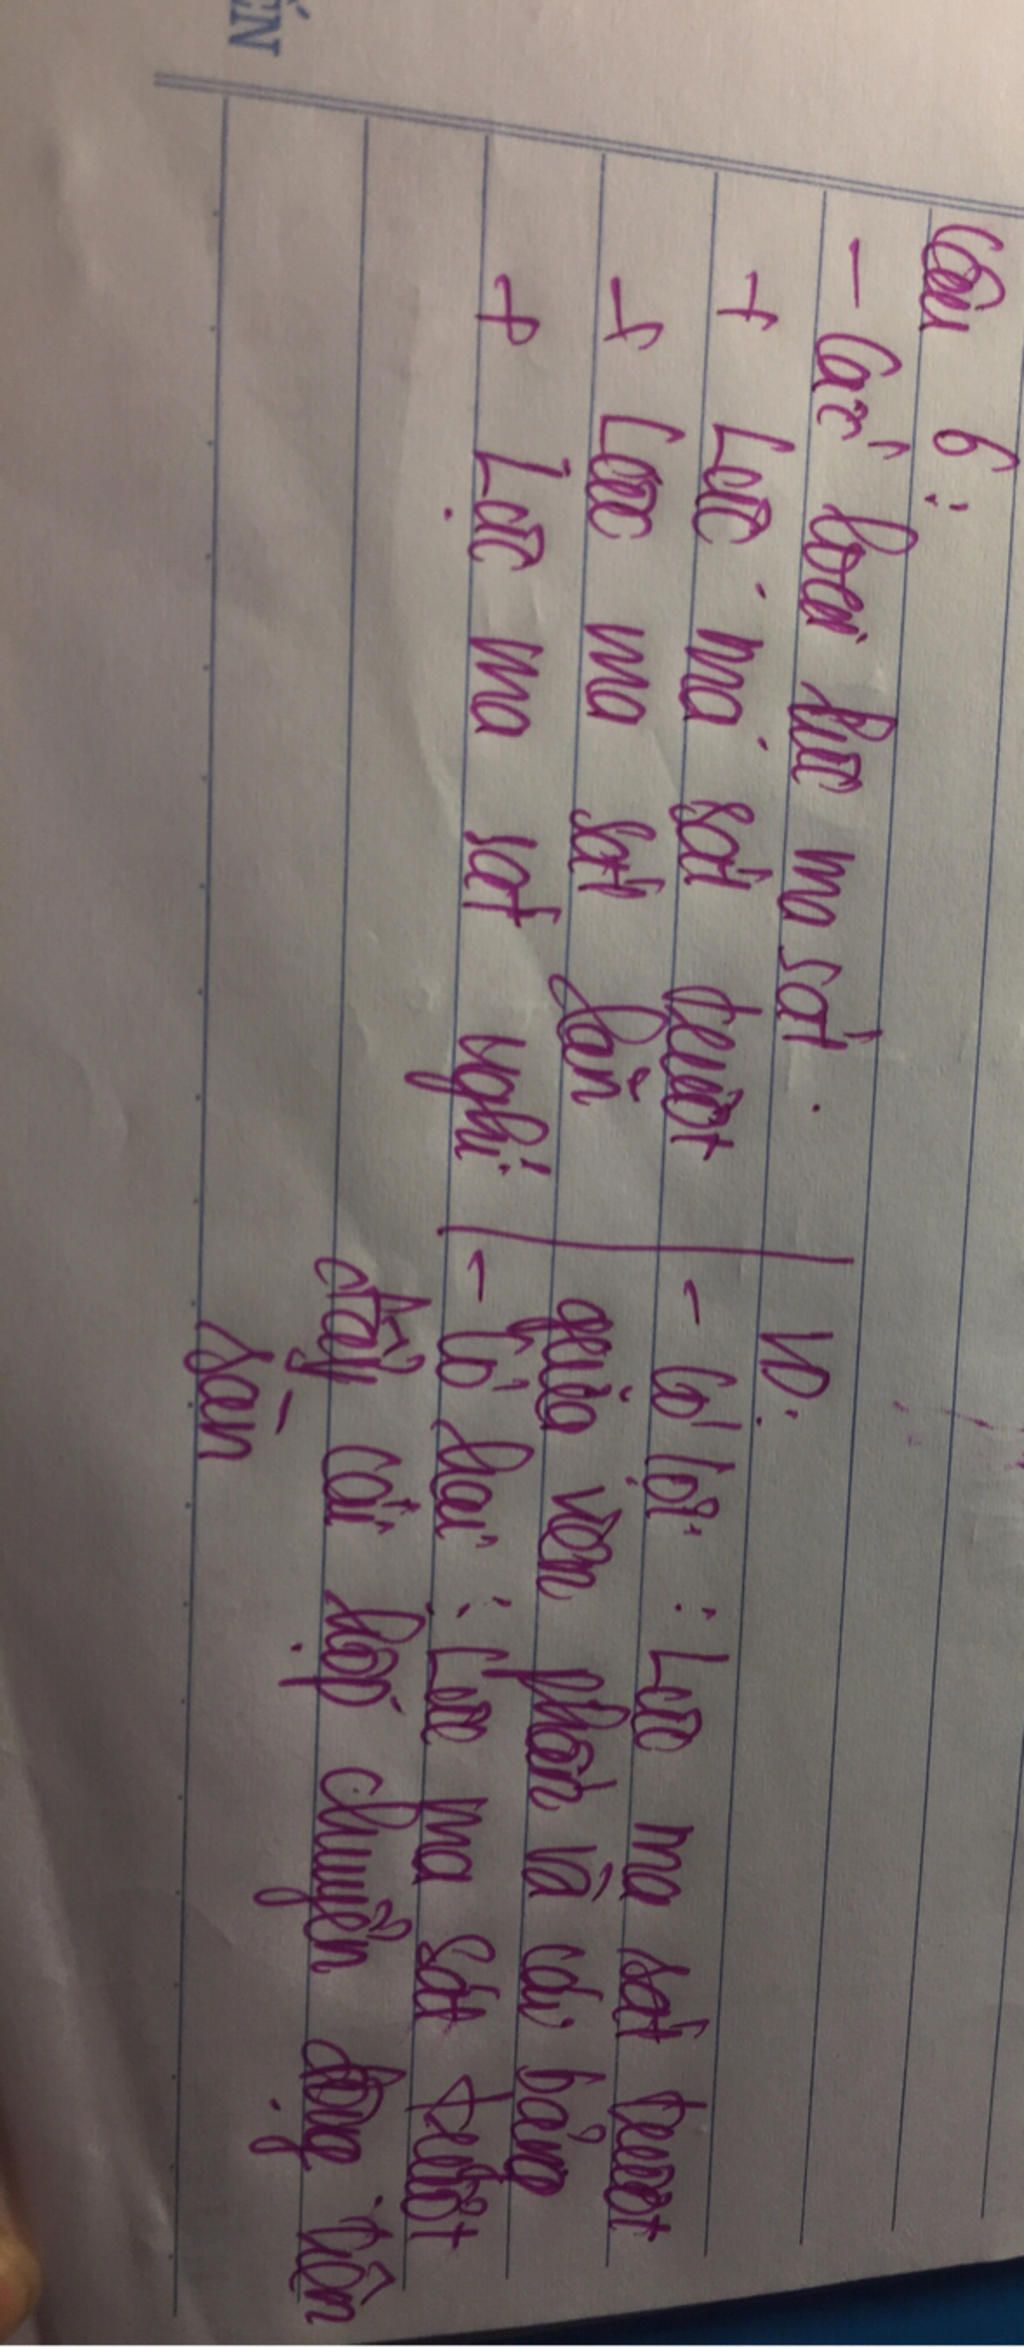 ẾN
Câu 6:
- Các loại lực ma sát.
+ Lực ma sát trượt
+ Lực ma sát lăn
+ Lực ma sát nghỉ
VD:
- Có lợi: Lực ma sát trượt
giữa viên phấn và cái bảng
- Có hại: Lực ma sát trượt
đẩy cái hộp chuyển động trên
sàn